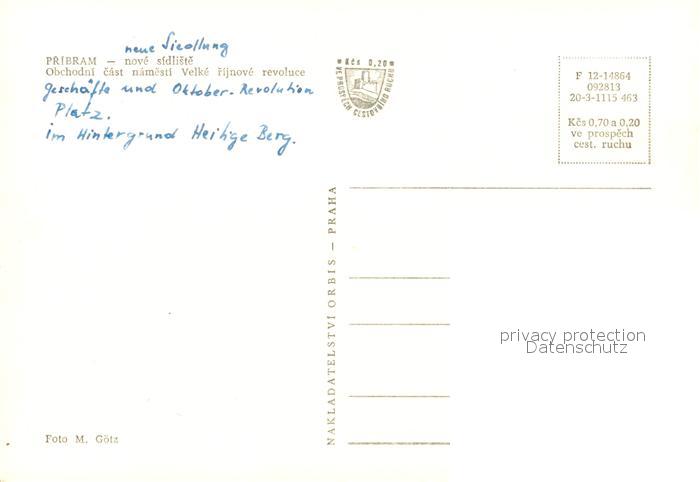 neue Siedlung
PŘÍBRAM — nové sídliště
Obchodní část náměstí Velké říjnové revoluce
Geschäfte und Oktober-Revolution
Platz.
im Hintergrund Heilige Berg.
Kčs 0,20
VE PROSPĚCH CESTOVNÍHO RUCHU
F 12-14864
092813
20-3-1115 463
Kčs 0,70 a 0,20
ve prospěch
cest. ruchu
NAKLADATELSTVÍ ORBIS — PRAHA
privacy protection
Datenschutz
Foto M. Götz